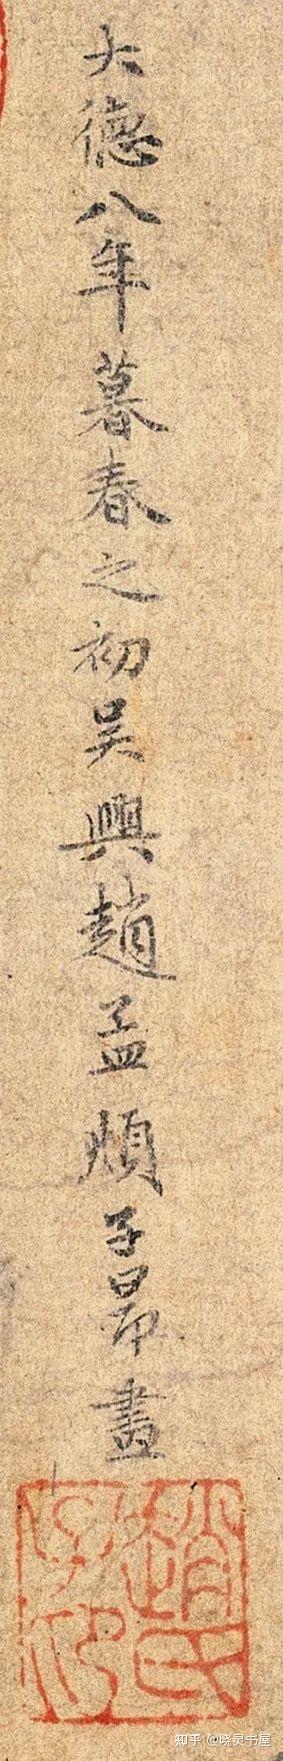 大德八年暮春之初吴興趙孟頫子昂畫
趙氏子印
知乎 @晓灵书屋